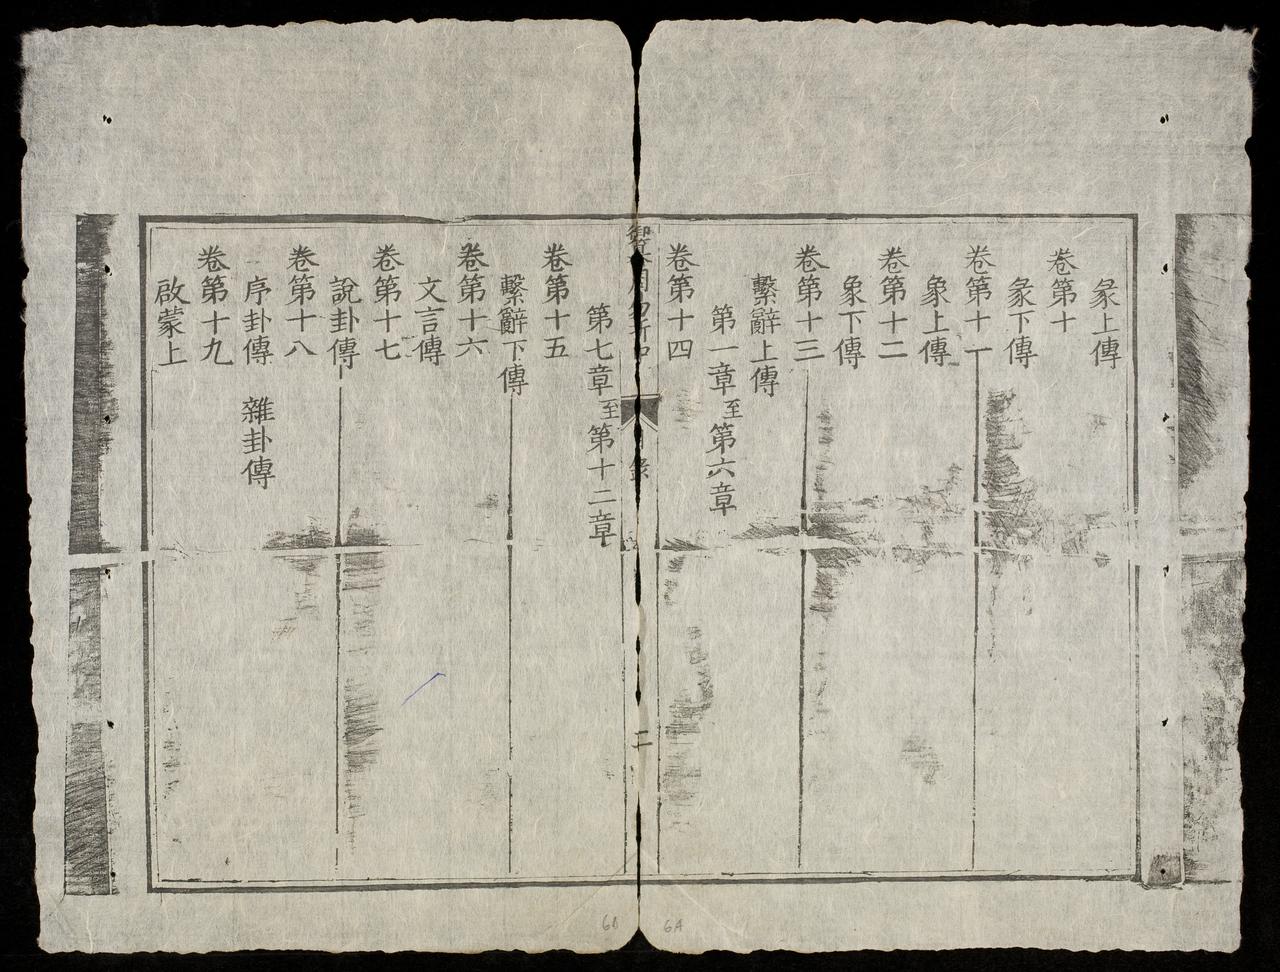 彖上傳
卷第十
彖下傳
卷第十一
象上傳
卷第十二
象下傳
卷第十三
繫辭上傳
第一章至第六章
卷第十四
御纂周易折中
目錄
二
第七章至第十二章
卷第十五
繫辭下傳
卷第十六
文言傳
卷第十七
說卦傳
卷第十八
序卦傳　雜卦傳
卷第十九
啟蒙上
6B
6A